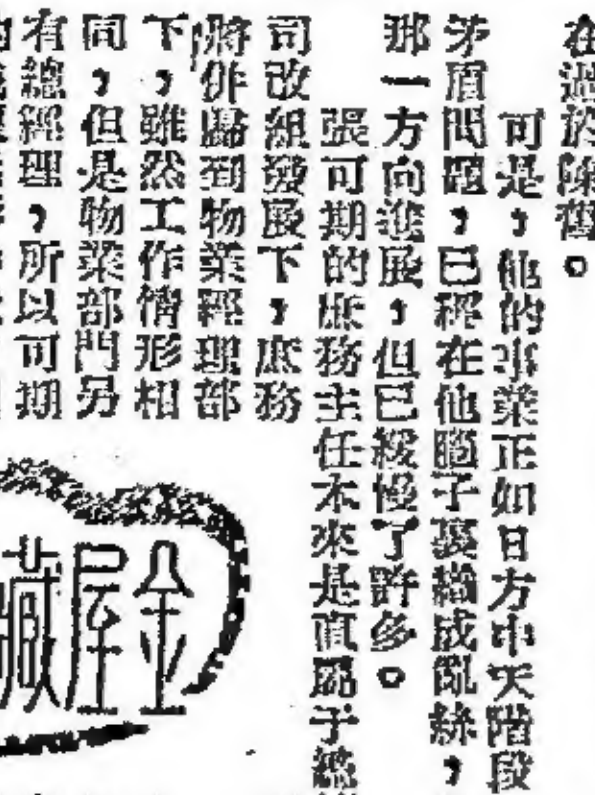 在過於陳舊。
可是，他的事業正如日方中天階段
矛盾問題，已經在他腦子裏織成亂絲，
那一方向進展，但已緩慢了許多。
張可期的庶務主任本來是直屬于總
司改組發展下，庶務
將併歸到物業經理部
下，雖然工作情形相
同，但是物業部門另
有總經理，所以可期
金屋藏